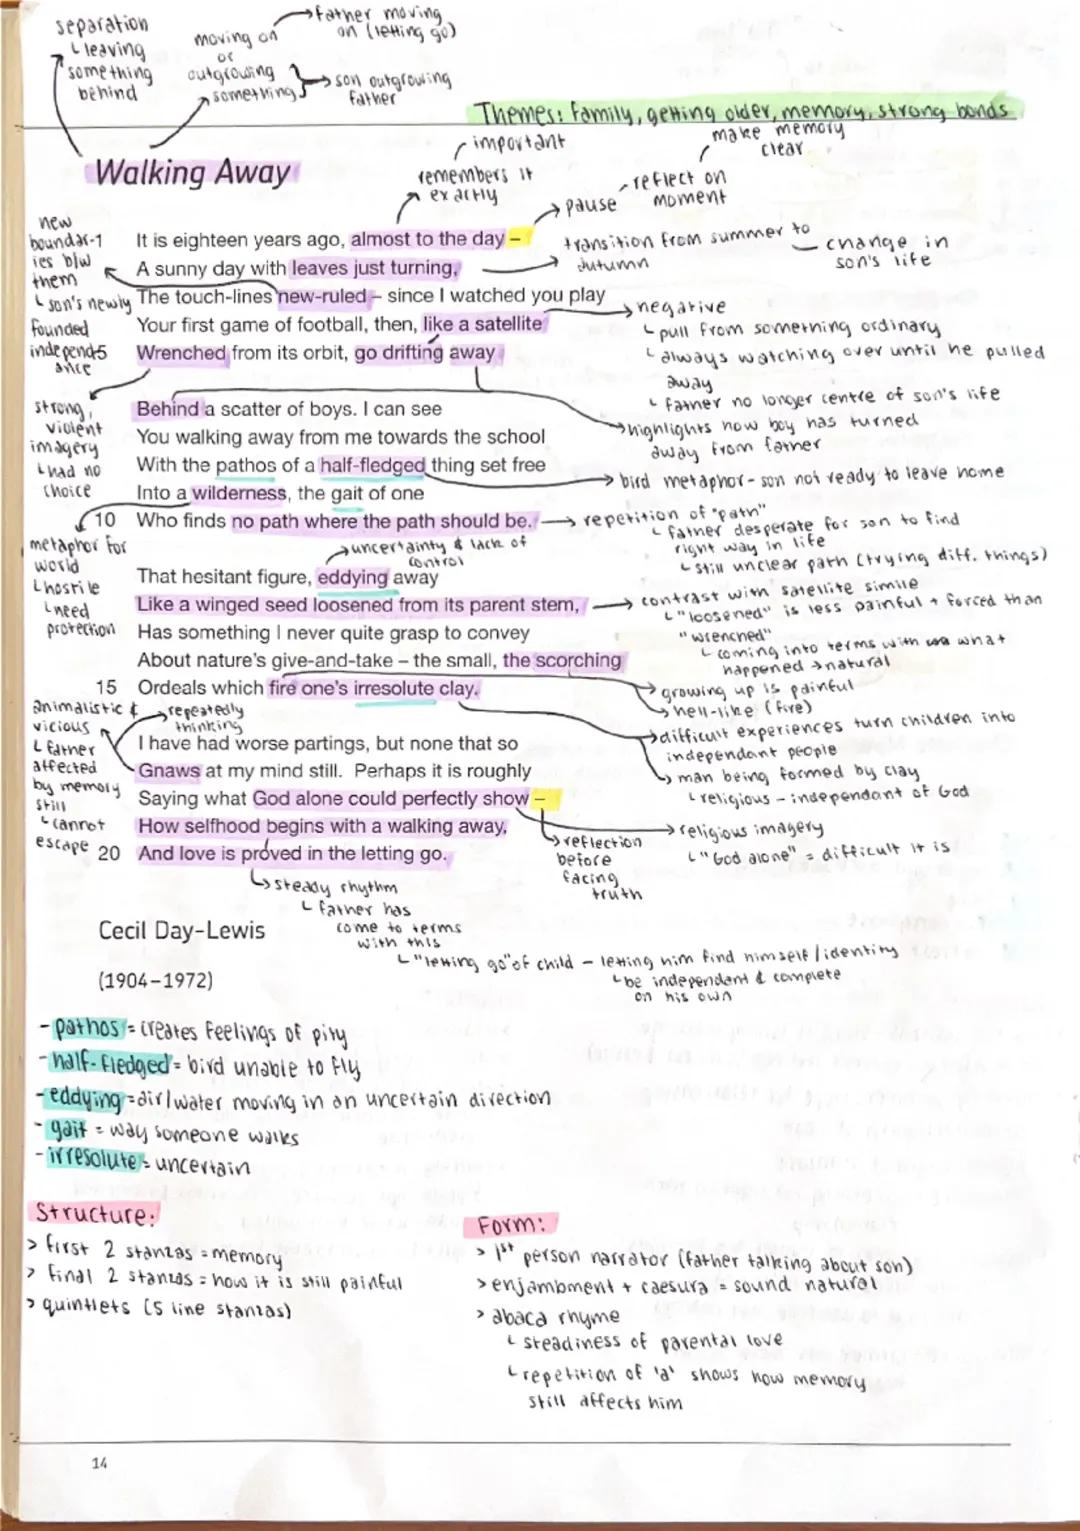 separation
↳ leaving
something
behind
moving on
or
outgrowing
something
→ father moving
on (letting go)
→ son outgrowing
father
Themes: family, getting older, memory, strong bonds
Walking Away
important
remembers it
exactly
make memory
clear
reflect on
moment
→ pause
new
boundar-
ies b/w
them
↳ son's newly
founded
independ-
ance
1 It is eighteen years ago, almost to the day –
A sunny day with leaves just turning,
The touch-lines new-ruled – since I watched you play
Your first game of football, then, like a satellite
5 Wrenched from its orbit, go drifting away
transition from summer to
autumn
change in
son's life
→ negative
↳ pull from something ordinary
↳ always watching over until he pulled
away
↳ father no longer centre of son's life
→ highlights how boy has turned
away from father
strong,
violent
imagery
↳ had no
choice
Behind a scatter of boys. I can see
You walking away from me towards the school
With the pathos of a half-fledged thing set free
Into a wilderness, the gait of one
10 Who finds no path where the path should be.
→ bird metaphor - son not ready to leave home
→ repetition of "path"
↳ father desperate for son to find
right way in life
↳ still unclear path (trying diff. things)
metaphor for
world
↳ hostile
↳ need
protection
→ uncertainty & lack of
control
That hesitant figure, eddying away
Like a winged seed loosened from its parent stem,
Has something I never quite grasp to convey
About nature's give-and-take – the small, the scorching
15 Ordeals which fire one's irresolute clay.
→ contrast with satellite simile
↳ "loosened" is less painful + forced than
"wrenched"
↳ coming into terms with what
happened → natural
→ growing up is painful
→ hell-like (fire)
→ difficult experiences turn children into
independant people
↳ man being formed by clay
↳ religious - independant of God
animalistic &
vicious
↳ father
affected
by memory
still
↳ cannot
escape
→ repeatedly
thinking
I have had worse partings, but none that so
Gnaws at my mind still. Perhaps it is roughly
Saying what God alone could perfectly show –
How selfhood begins with a walking away,
20 And love is proved in the letting go.
→ religious imagery
↳ "God alone" = difficult it is
→ reflection
before
facing
truth
↳ steady rhythm
↳ father has
come to terms
with this
↳ "letting go" of child - letting him find himself / identity
↳ be independent & complete
on his own
Cecil Day-Lewis
(1904–1972)
- pathos = creates feelings of pity
- half-fledged = bird unable to fly
- eddying = air/water moving in an uncertain direction
- gait = way someone walks
- irresolute = uncertain
Structure:
> first 2 stanzas = memory
> final 2 stanzas = how it is still painful
> quintlets (5 line stanzas)
Form:
> 1st person narrator (father talking about son)
> enjambment + caesura = sound natural
> abaca rhyme
↳ steadiness of parental love
↳ repetition of 'a' shows how memory
still affects him
14